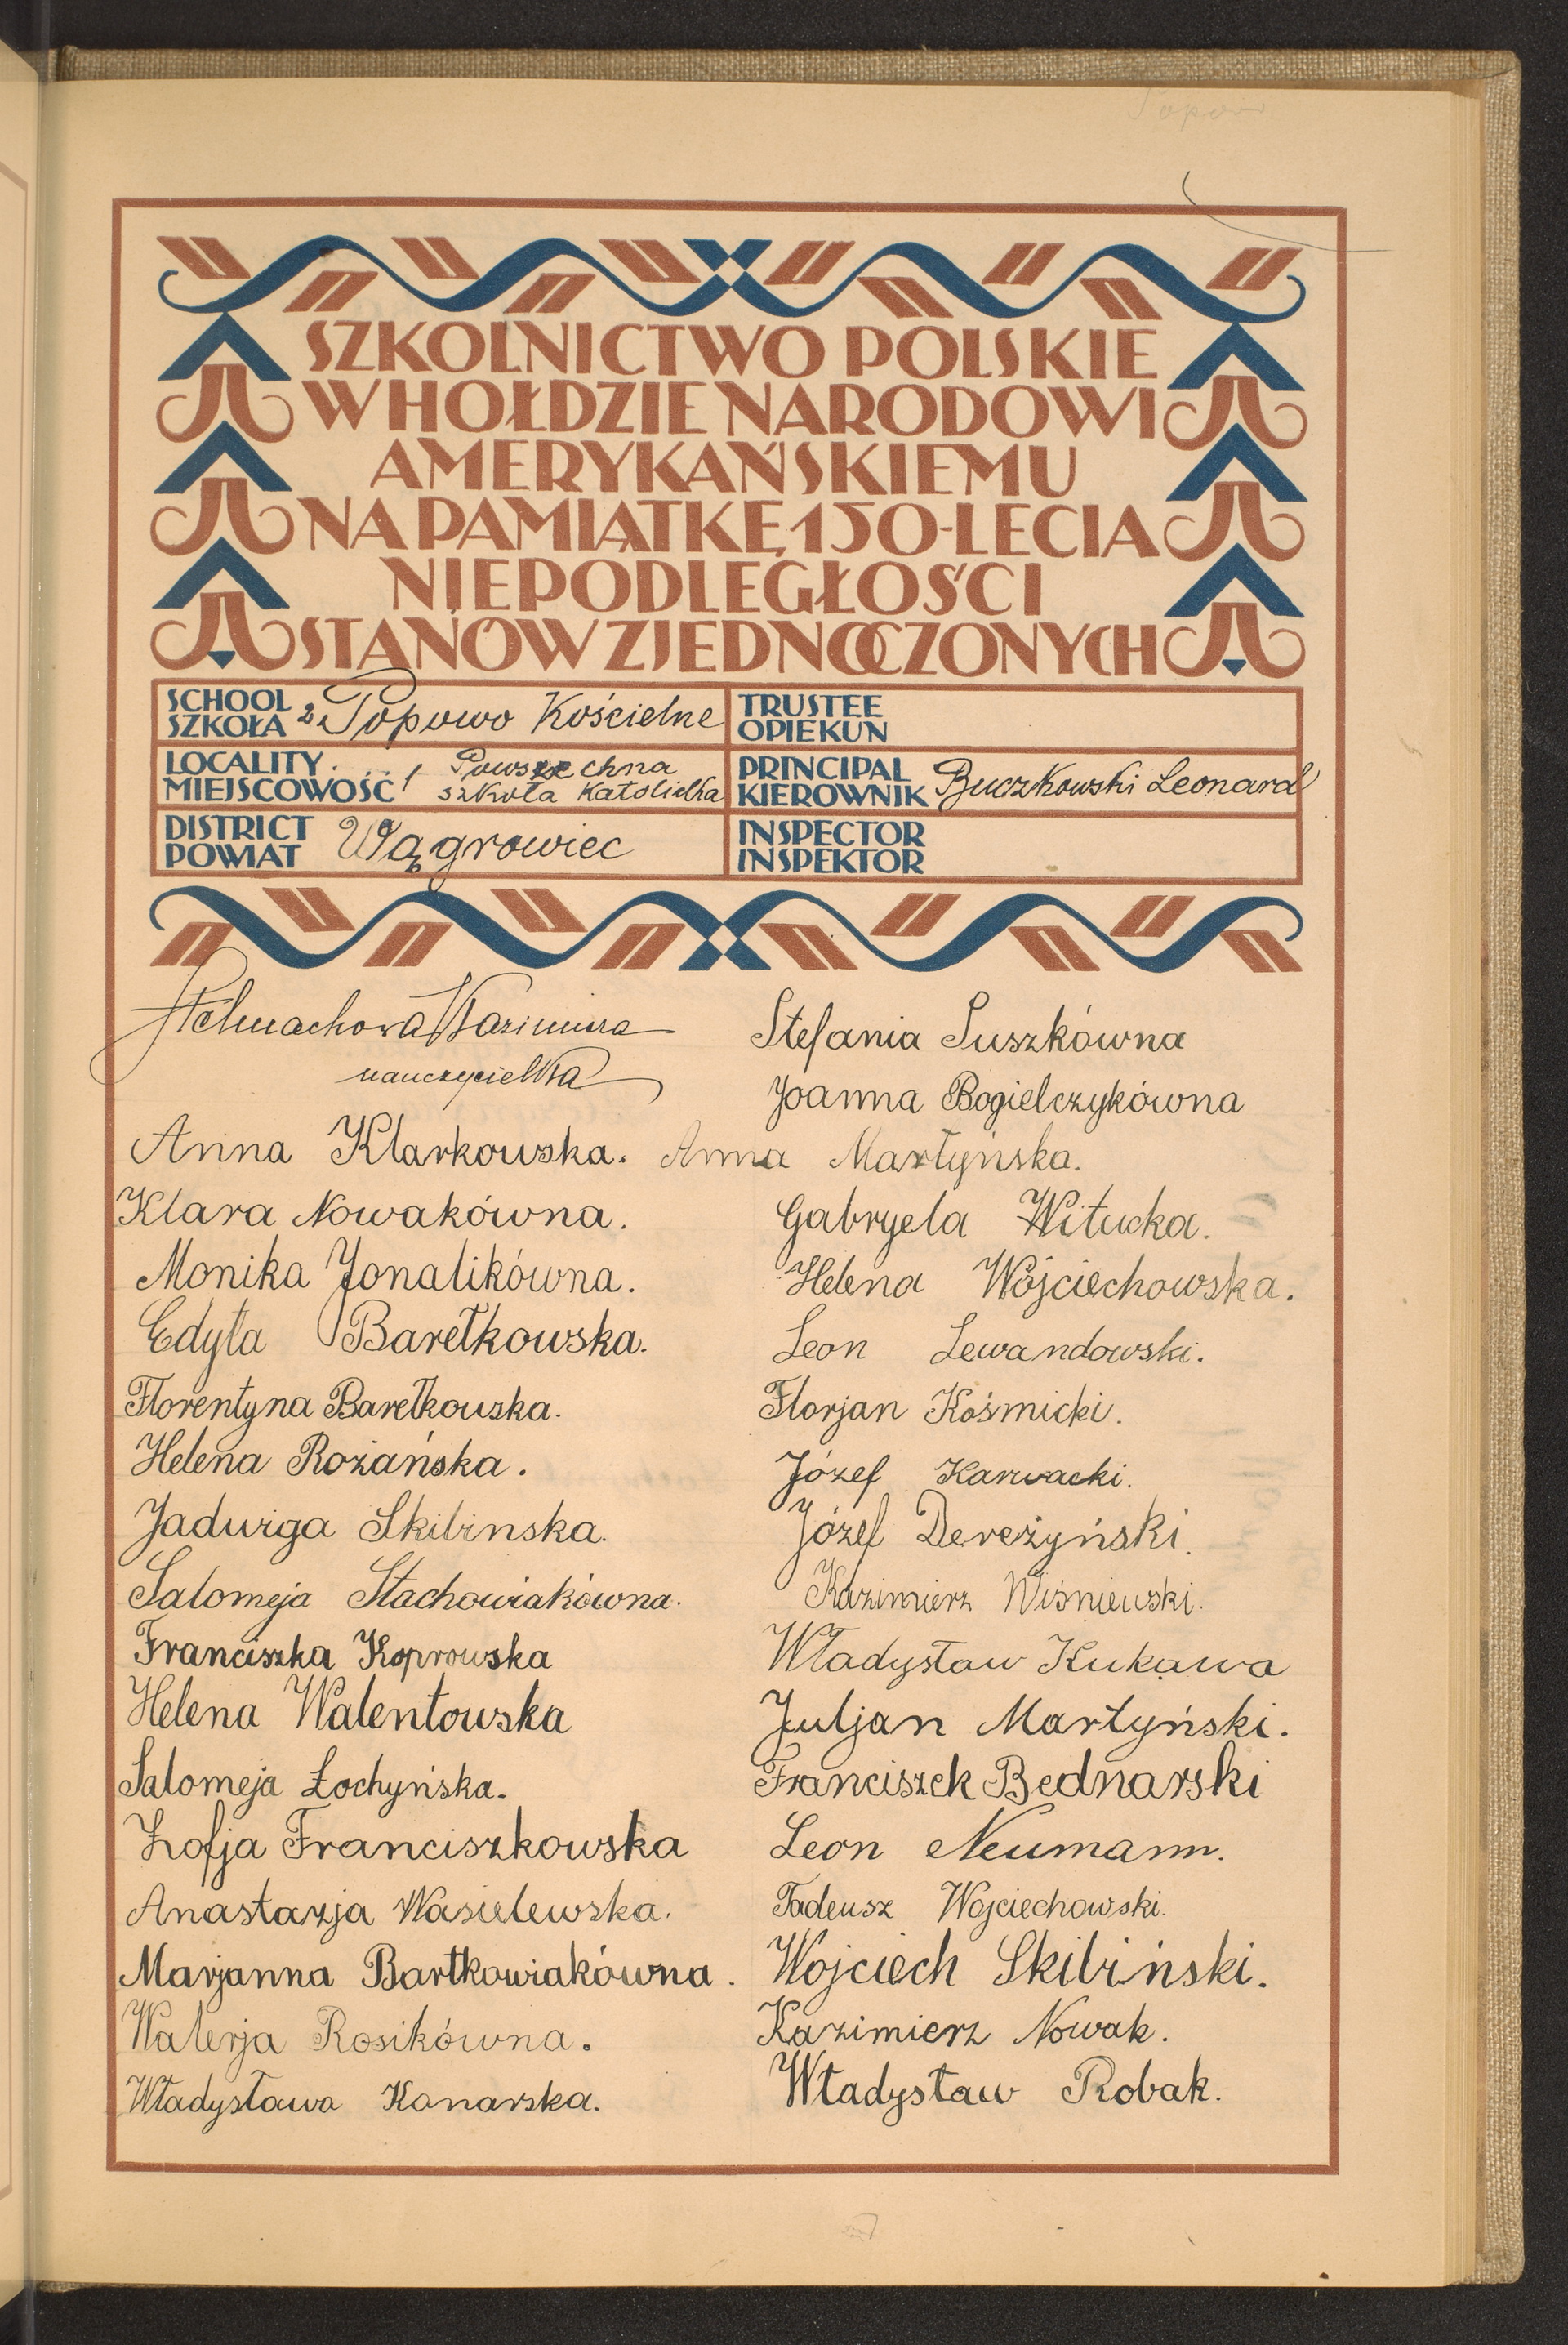 SZKOLNICTWO POLSKIE
W HOŁDZIE NARODOWI
AMERYKAŃSKIEMU
NA PAMIĄTKĘ 150-LECIA
NIEPODLEGŁOŚCI
STANÓW ZJEDNOCZONYCH
SCHOOL
SZKOŁA 2 Popowo Kościelne
TRUSTEE
OPIEKUN
LOCALITY
MIEJSCOWOŚĆ 1 Powszechna
szkoła Katolicka
PRINCIPAL
KIEROWNIK Buczkowski Leonard
DISTRICT
POWIAT Wągrowiec
INSPECTOR
INSPEKTOR
Stelmachowa Kazimiera
nauczycielka
Anna Klarkowska.
Klara Nowakówna.
Monika Jonalikówna.
Edyta Barełkowska.
Florentyna Barełkowska.
Helena Rożańska.
Jadwiga Skibinska.
Salomeja Stachowiakówna.
Franciszka Koprowska
Helena Walentowska
Salomeja Żochyńska.
Zofja Franciszkowska
Anastazja Wasielewska.
Marjanna Bartkowiakówna.
Walerja Rosikówna.
Władysława Kanarska.
Stefania Suszkówna
Joanna Bogielczykówna
Anna Martyńska.
Gabryela Witucka.
Helena Wójciechowska.
Leon Lewandowski.
Florjan Kośmicki.
Józef Karwacki.
Józef Dereżyński.
Kazimierz Wiśniewski.
Władysław Kukawa
Juljan Martyński.
Franciszek Bednarski
Leon Neumann.
Tadeusz Wojciechowski.
Wojciech Skibiński.
Kazimierz Nowak.
Władysław Robak.